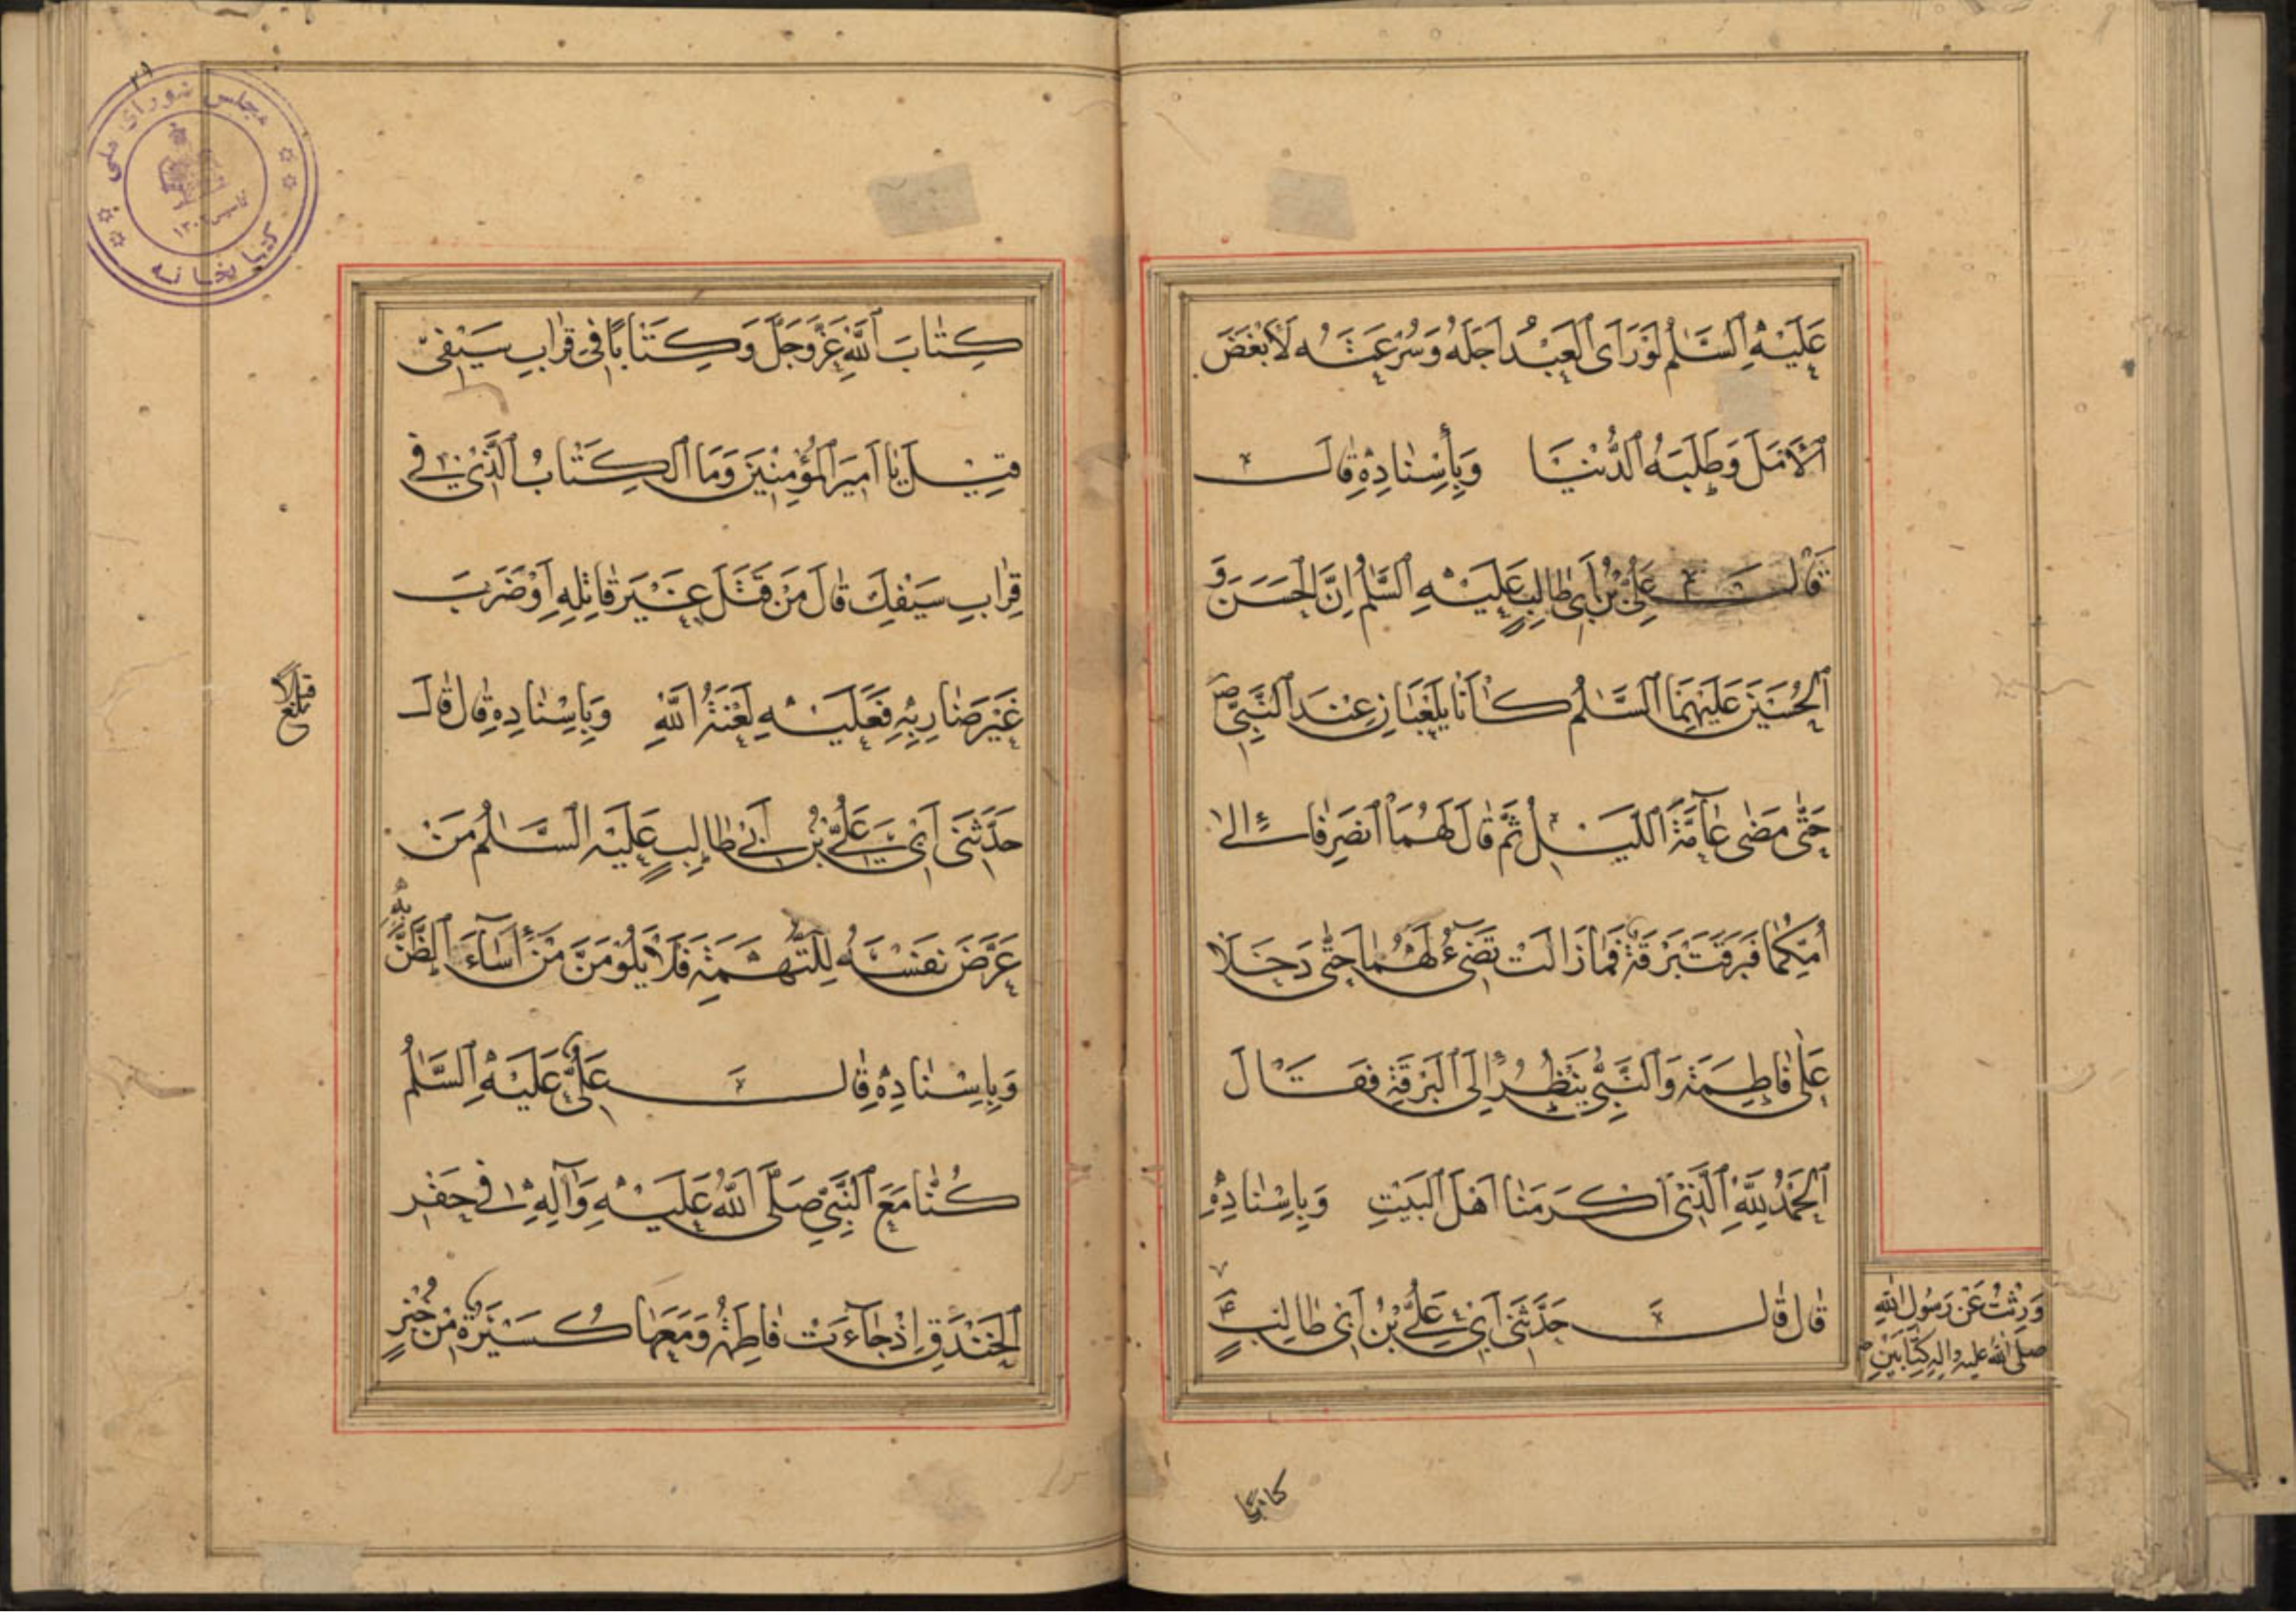 عَلَيْهِ السَّلٰمُ لَوْ رَاَى الْعَبْدُ اَجَلَهُ وَسُرْعَتَهُ لَاَبْغَضَ
الْاَمَلَ وَطَلَبَهُ الدُّنْيَا وَبِأِسْنٰادِهِ قٰالَ
قٰالَ عَلِيُّ بْنُ اَبِي طٰالِبٍ عَلَيْهِ السَّلٰمُ اِنَّ الْحَسَنَ وَ
الْحُسَيْنَ عَلَيْهِمَا السَّلٰمُ كٰانٰا يَلْعَبَانِ عِنْدَ النَّبِيِّ ص
حَتّٰى مَضٰى عٰآمَّةُ اللَّيْلِ ثُمَّ قٰالَ لَهُمَا انْصَرِفٰا اِلٰى
اُمِّكُمٰا فَبَرَقَتْ بَرْقَةٌ فَمٰا زَالَتْ تُضِىءُ لَهُمٰا حَتّٰى دَخَلَا
عَلٰى فٰاطِمَةَ وَالنَّبِيُّ يَنْظُرُ اِلَى الْبَرْقَةِ فَقَالَ
اَلْحَمْدُ لِلّٰهِ الَّذِىْ اَكْرَمَنٰا اَهْلَ الْبَيْتِ وَبِاِسْنٰادِهِ
قٰالَ قٰالَ حَدَّثَنِى اَبِىْ عَلِيُّ بْنُ اَبِى طٰالِبٍ ع
وَرِثْتُ عَنْ رَسُولِ اللّٰهِ
صَلَّى اللّٰهُ عليه واله كِتَابَيْنِ
كتابًا
٢١
مجلس شورای ملی
کتابخانه
تأسیس ١٣٠٢
كِتٰابَ اللّٰهِ عَزَّ وَجَلَّ وَكِتٰابًا فِى قِرٰابِ سَيْفِىْ
قِيْلَ يٰا اَمِيْرَ الْمُؤْمِنِيْنَ وَمَا الْكِتٰابُ الَّذِىْ فِى
قِرٰابِ سَيْفِكَ قٰالَ مَنْ قَتَلَ غَيْرَ قٰاتِلِهِ اَوْ ضَرَبَ
غَيْرَ ضٰارِبِهِ فَعَلَيْهِ لَعْنَةُ اللّٰهِ وَبِاِسْنٰادِهِ قٰالَ قٰالَ
حَدَّثَنِى اَبِىْ عَلِيُّ بْنُ اَبِىْ طٰالِبٍ عَلَيْهِ السَّلٰمُ مَنْ
عَرَّضَ نَفْسَهُ لِلتُّهَمَةِ فَلَا يَلُوْمَنَّ مَنْ اَسَآءَ الظَّنَّ بِهِ
وَبِاِسْنٰادِهِ قٰالَ عَلِىٌّ عَلَيْهِ السَّلٰمُ
كُنّٰا مَعَ النَّبِيِّ صَلَّى اللّٰهُ عَلَيْهِ وَاٰلِهِ فِى حَفْرِ
الْخَنْدَقِ اِذْ جٰآءَتْ فٰاطِمَةُ وَمَعَهٰا كُسَيْرَةٌ مِنْ خُبْزٍ